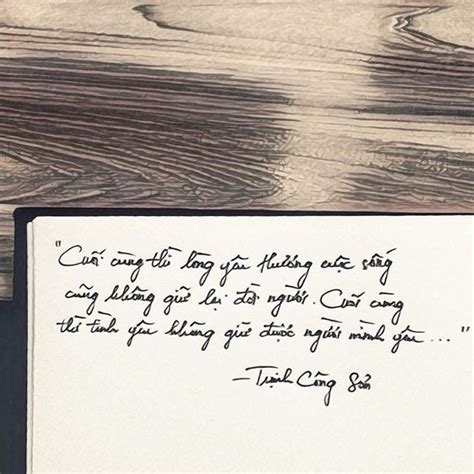 "Cuối cùng thì lòng yêu thương cuộc sống
cũng không giữ lại đời người. Cuối cùng
thì tình yêu không giữ được người mình yêu ... "
— Trịnh Công Sơn